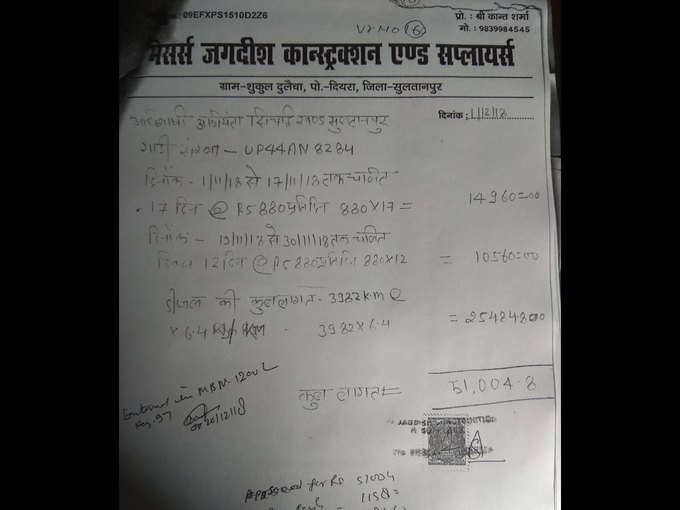 09EFXPS1510D2Z6
प्रो. : श्री कान्त शर्मा
मो.: 9839984545
मेसर्स जगदीश कान्स्ट्रक्शन एण्ड सप्लायर्स
ग्राम-शुकुल दुलैचा, पो.-दियरा, जिला-सुलतानपुर
दिनांक: 1/12/18
सुल्तानपुर
गाड़ी संख्या - UP44AN8284
दिनाँक - 1/11/18 से 17/11/18 तक चलित
17 दिन @ RS 880 प्रतिदिन 880X17 = 14960=00
दिनाँक - 19/11/18 से 30/11/18 तक चलित
12 दिन @ RS 880 प्रतिदिन 880X12 = 10560=00
डीजल की कुल लागत - 3982 km @
X 6.4 KM - 3982X6.4 = 25484.800
कुल लागत = 51,004.8
Entered in MBN-1200L
Pag. 97
20/12/18
for Rs 51004